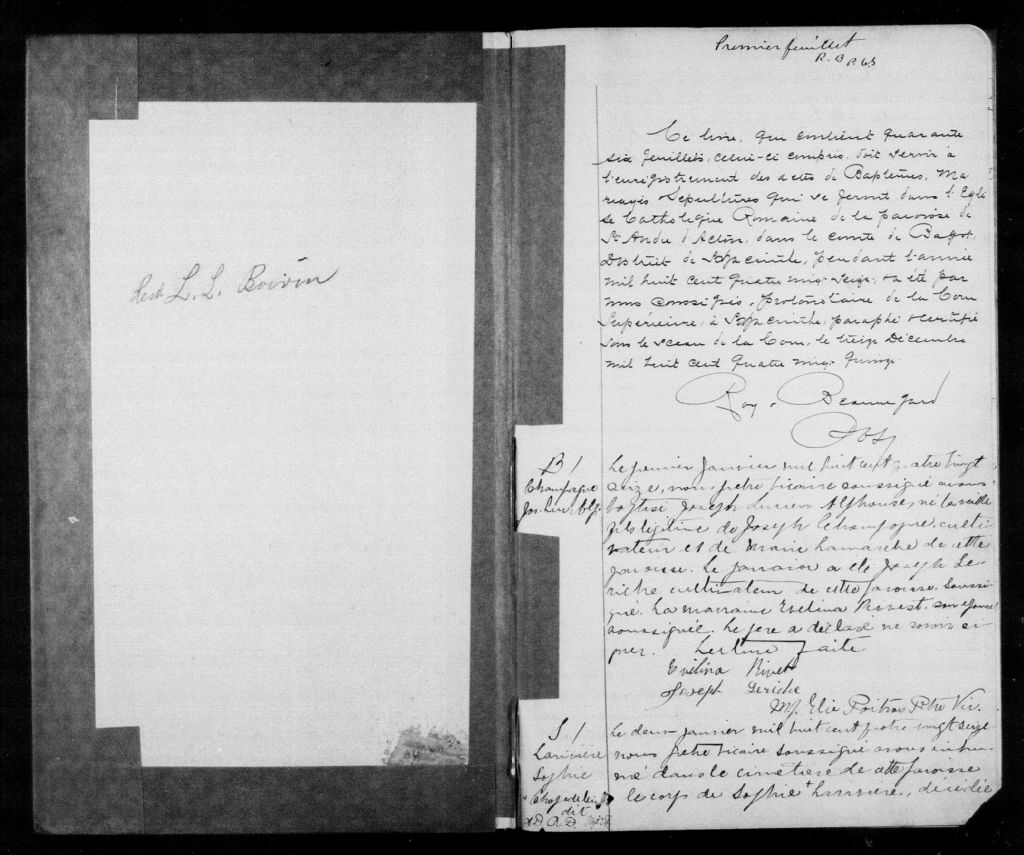 L. L. Boivin
Premier feuillet
R. B
Ce livre, qui contient quarante
six feuillets, celui-ci compris, doit servir à
l'enrégistrement des actes de Baptêmes, Ma
riages & Sépultures qui se feront dans l'Egli
se Catholique Romaine de la paroisse de
St André d'Acton, dans le comté de Bagot,
District de St Hyacinthe, pendant l'année
mil huit cent quatre vingt Seize, a été par
nous soussigné, protonotaire de la Cour
Supérieure, à St Hyacinthe, paraphé & certifié
sous le sceau de la Cour, le treize Décembre
mil huit cent quatre vingt quinze.
Roy & Beauregard
B /
Champagne
Jos. Luc. Alp.
Le premier Janvier mil huit cent quatre vingt
seize, nous prêtre vicaire soussigné avons
baptisé Joseph Lucien Alphonse, né la veille
fils légitime de Joseph Champagne, culti-
vateur et de Marie Lamarche de cette
paroisse. Le parrain a été Joseph Le-
riche cultivateur de cette paroisse, soussi-
gné. La marraine Evelina Rivest, son épouse
soussignée. Le père a déclaré ne savoir si-
gner. Lecture faite
Evelina Rivest
Joseph Leriche
Elie Poitras Ptre Vic.
S /
Larivière
Sophie
dit
Le deux janvier mil huit cent quatre vingt seize
nous prêtre vicaire soussigné avons inhu-
mé dans le cimetière de cette paroisse
le corps de Sophie + Larivière, décédée